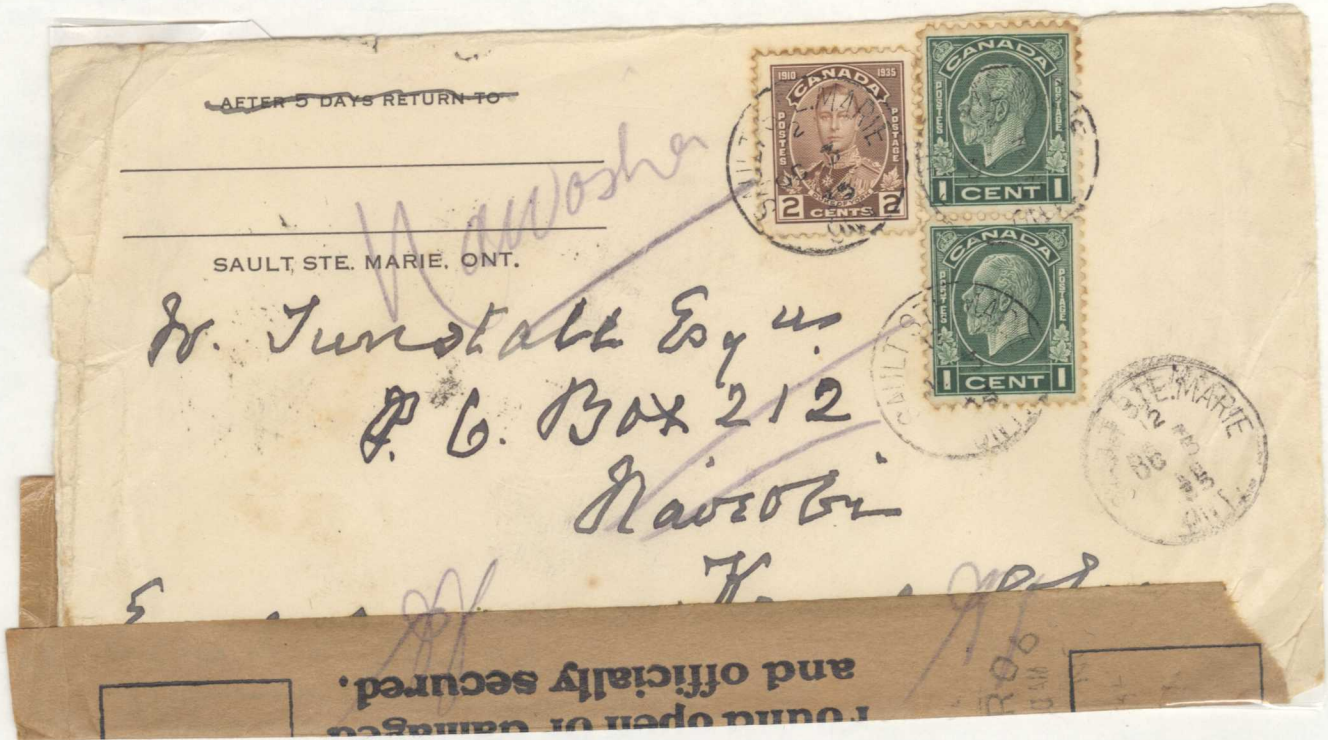 AFTER 5 DAYS RETURN TO
SAULT STE. MARIE, ONT.
1910 CANADA 1935
POSTES POSTAGE
2 CENTS 2
CANADA
POSTES POSTAGE
1 CENT 1
CANADA
POSTES POSTAGE
1 CENT 1
STE. MARIE
W. Tunstall Esqre
P. O. Box 212
Nairobi
STE. MARIE
12
35
ONT.
Found open or damaged
and officially secured.